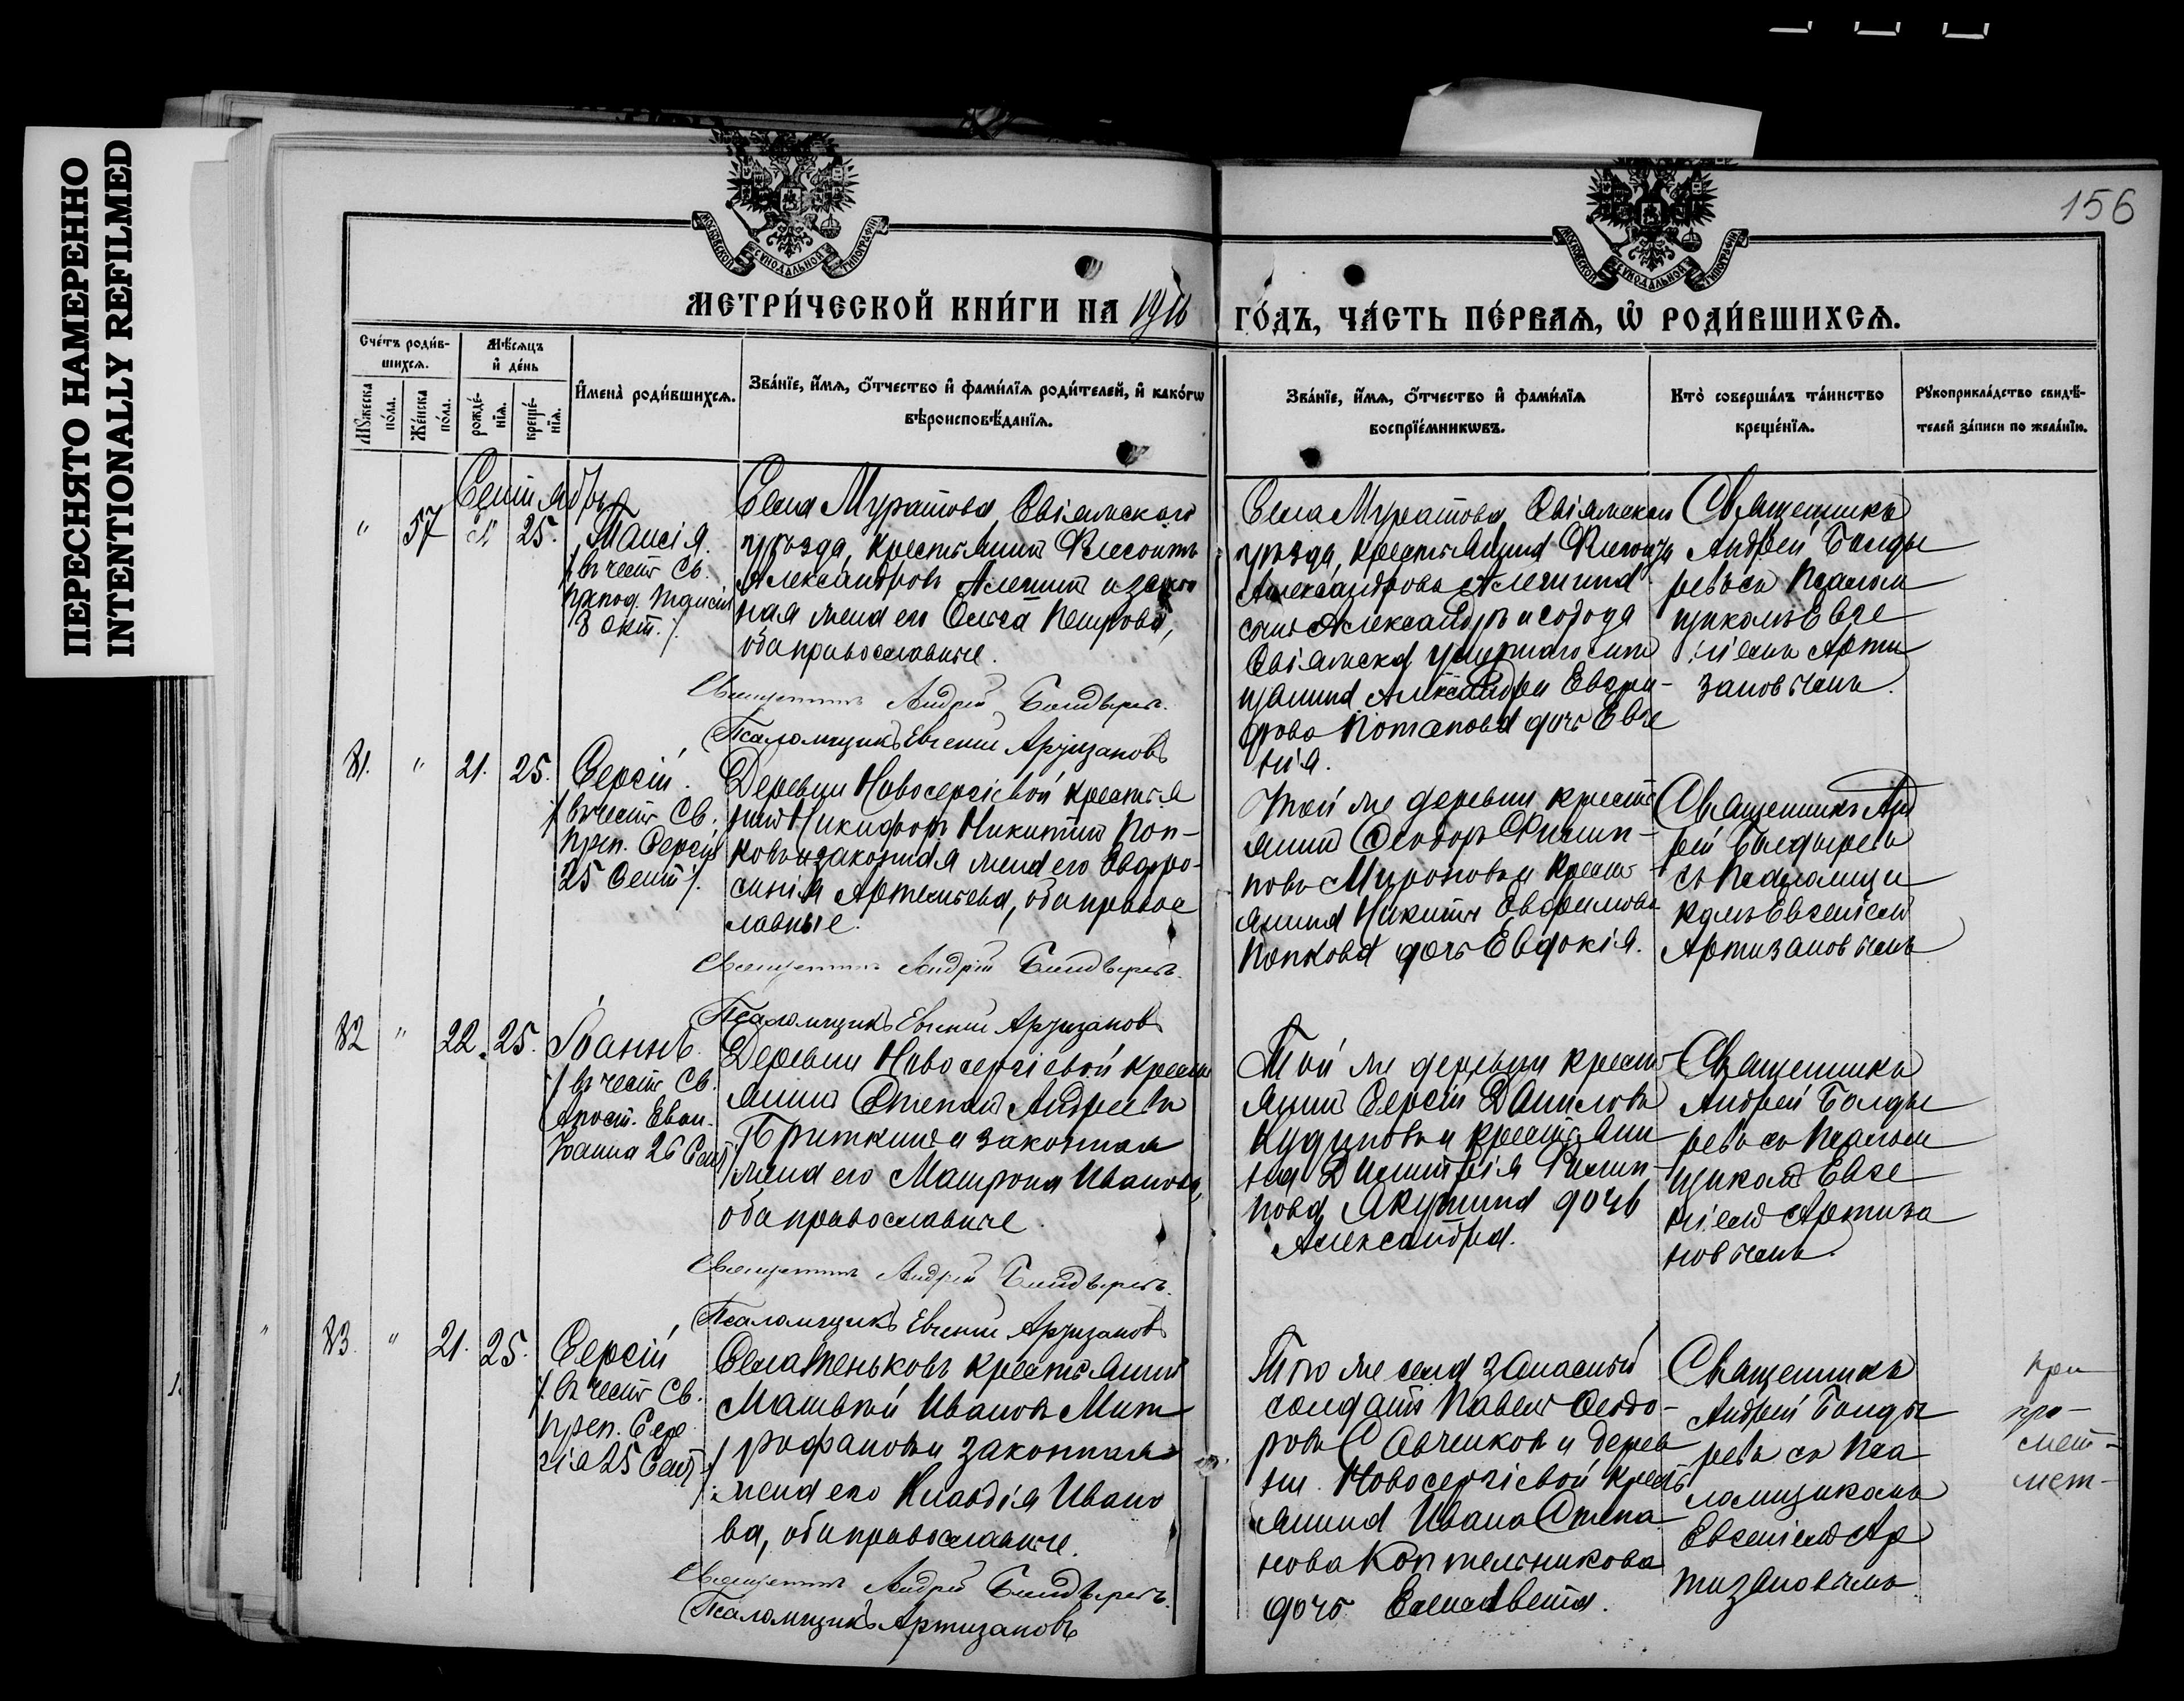 ПЕРЕСНЯТО НАМЕРЕННО
INTENTIONALLY REFILMED
156
МОСКОВСКОЙ СѴНОДАЛЬНОЙ ТИПОГРАФІИ
МОСКОВСКОЙ СѴНОДАЛЬНОЙ ТИПОГРАФІИ
МЕТРИ́ЧЕСКОЙ КНИ́ГИ НА
ГО́ДЪ, ЧА́СТЬ ПЕ́РВАѦ, Ѡ РОДИ́ВШИХСѦ.
Сче́тъ роди́в-
шихсѧ.
Мꙋ́жеска по́ла.
Же́нска по́ла.
Мѣ́сѧцъ
и҆ де́нь
рожде́-
нїѧ.
креще́-
нїѧ.
И҆мена̀ роди́вшихсѧ.
Зва́нїе, и҆́мѧ, ѻ҆́тчество и҆ фами́лїѧ роди́телей, и҆ како́гѡ
вѣроисповѣ́данїѧ.
Зва́нїе, и҆́мѧ, ѻ҆́тчество и҆ фами́лїѧ
воспрїе́мникѡвъ.
Кто̀ соверша́лъ та́инство
креще́нїѧ.
Рꙋкоприкла́дство свидѣ́-
телей за́писи по жела́нїю.
Сентябрь
" 57 25. Таисія.
/ въ честь Св.
препод. Таисіи
8 окт. /.
Села Муратова, Свіяжскаго
уѣзда, крестьянинъ
Александровъ Алешинъ и закон
ная жена его Ольга Петрова,
оба православные.
Священникъ Андрей Болдыревъ.
Псаломщикъ Евгеній Артизановъ
Села Муратова, Свіяжскаго
уѣзда, крестьянина
Александрова Алешина
сынъ Александръ и города
Свіяжска, умершаго
Александра
Потапова дочь Евге
нія.
Священникъ
Андрей Болды
ревъ съ Псалом
щикомъ Евге
ніемъ Арти
зановымъ.
81. " 21. 25. Сергій.
/ въ честь Св.
преп. Сергія
25 Сент /.
Деревни Новосергіевой крестья
нинъ Никифоръ Никитинъ Поп-
ковъ и законная жена его Евфро-
синія Артемьева, оба правос
лавные.
Священникъ Андрей Болдыревъ.
Псаломщикъ Евгеній Артизановъ
Той же деревни кресть
янинъ Ѳеодоръ Филип-
повъ Мироновъ и крест-
янина Никиты Евфимова
Попкова дочь Евдокія.
Священникъ Анд
рей Болдыревъ
съ Псаломщи
комъ Евгеніемъ
Артизановымъ
82 " 22. 25. Іоаннъ
/ въ честь Св.
Апост. Еван.
Іоанна 26 Сент /
Деревни Новосергіевой кресть
янинъ Степанъ Андреевъ
Бриткинъ и законная
жена его Матрона Иванова,
оба православные.
Священникъ Андрей Болдыревъ.
Псаломщикъ Евгеній Артизановъ
Той же деревни кресть
янинъ Сергій Даниловъ
и крестьяни
на Димитрія Филип-
пова Якушина дочь
Александра.
Священникъ
Андрей Болды
ревъ съ Псалом
щикомъ Евге
ніемъ Артиза
новымъ.
83. " 21. 25. Сергій
/ въ честь Св.
преп. Сер
гія 25 Сент /
Села Теньковъ крестьянинъ
Матвѣй Ивановъ Мит
рофановъ и законная
жена его Клавдія Ивано
ва, оба православные.
Священникъ Андрей Болдыревъ.
Псаломщикъ Артизановъ
Того же села запасный
солдатъ Павелъ Ѳеодо-
ровъ Савченковъ и дерев
ни Новосергіевой кресть
янина Ивана Степа
нова Коптельникова
дочь Елисавета.
Священникъ
Андрей Болды
ревъ съ Пса
ломщикомъ
Евгеніемъ Ар
тизановымъ